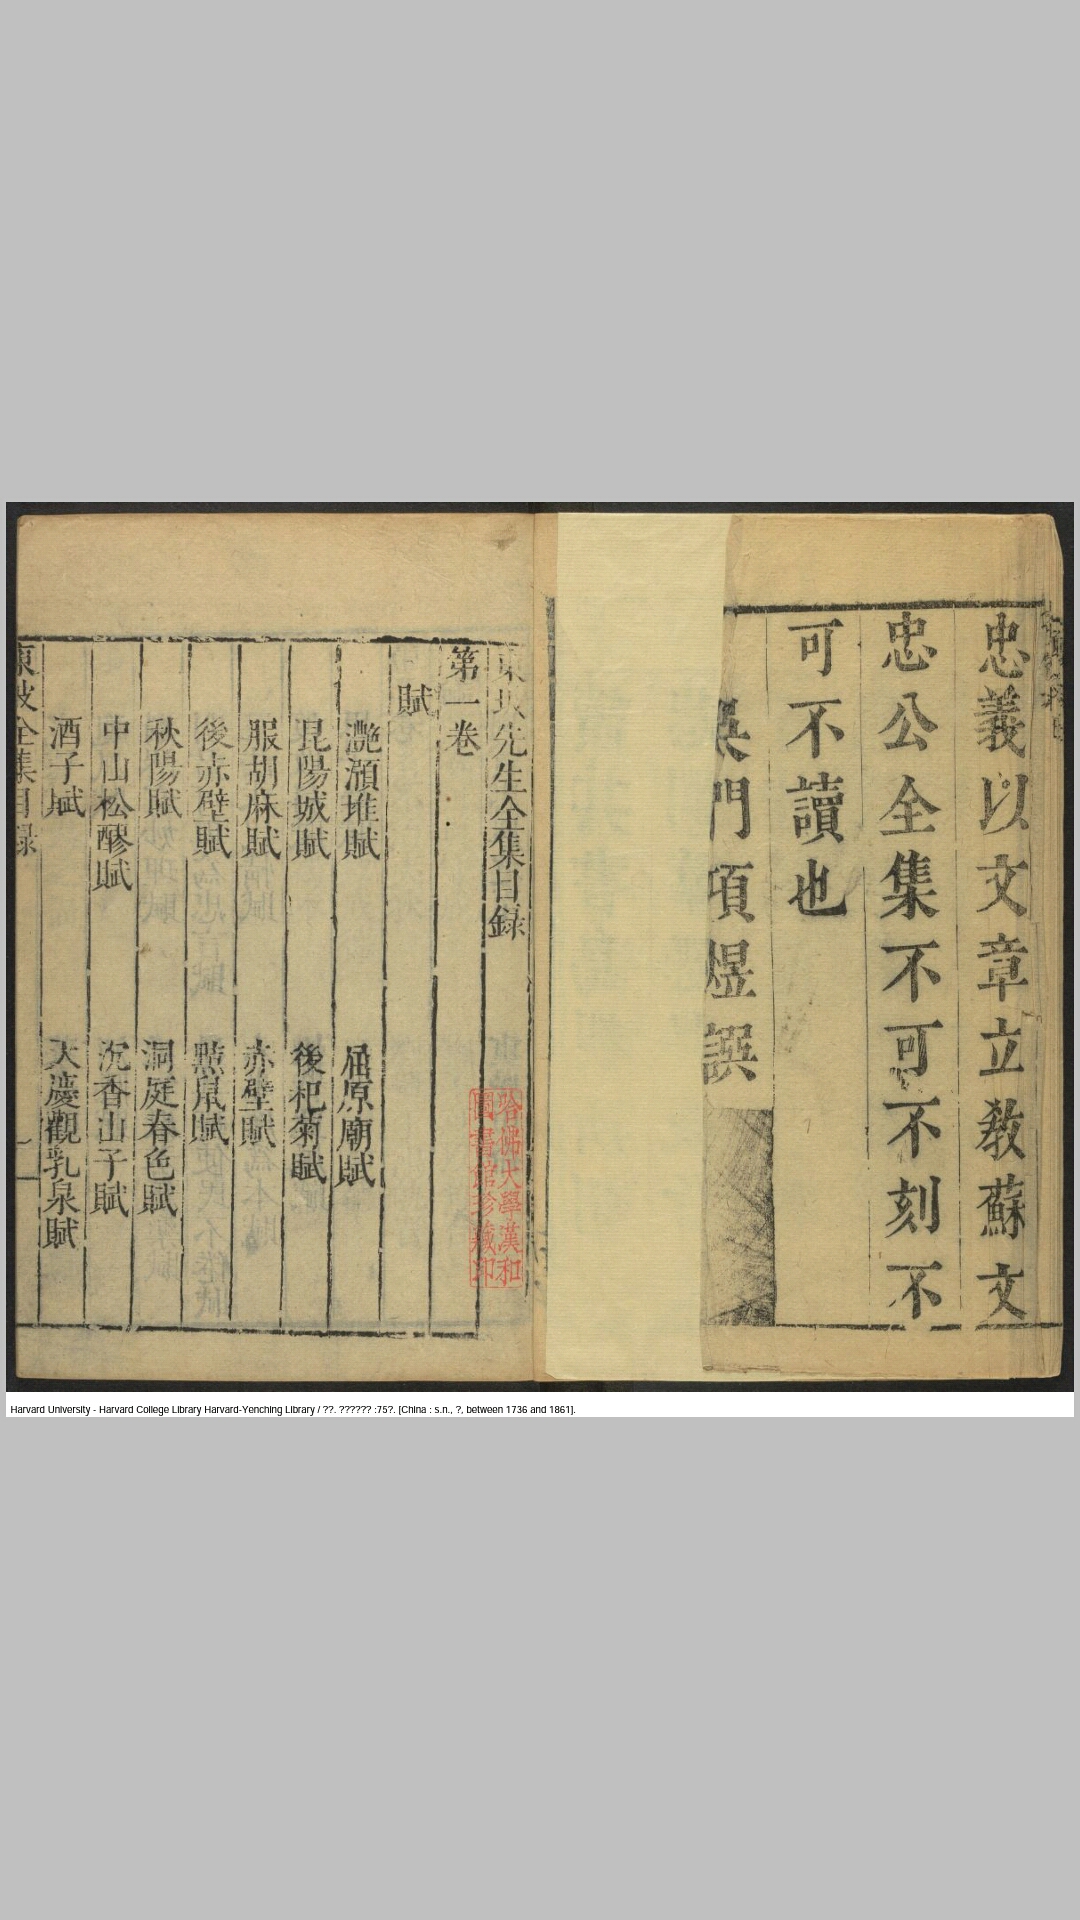 忠義以文章立教蘇文
忠公全集不可不刻不
可不讀也
吳門項煜譔
東坡先生全集目錄
第一卷
賦
灩澦堆賦
屈原廟賦
昆陽城賦
後杞菊賦
服胡麻賦
赤壁賦
後赤壁賦
黠鼠賦
秋陽賦
洞庭春色賦
中山松醪賦
沉香山子賦
酒子賦
天慶觀乳泉賦
東坡全集目錄
哈佛大學漢和
圖書館珍藏印
Harvard University - Harvard College Library Harvard-Yenching Library / ??. ?????? :75?. [China : s.n., ?, between 1736 and 1861].